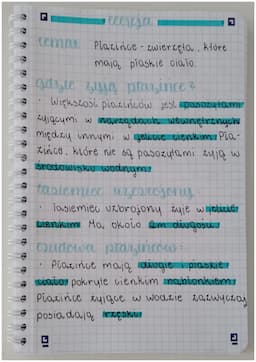 Lekcja
Temat: Płazińce - zwierzęta, które
mają płaskie ciało.
gdzie żyją płazińce?
· Większość płazińców jest pasożytami
żyjącymi w narządach wewnętrznych
między innymi w jelicie cienkim. Pła-
zińce, które nie są pasożytami żyją w
środowisku wodnym.
tasiemiec uzbrojony
· Tasiemiec uzbrojony żyje w jelicie
cienkim. Ma około 2m długości.
budowa płazińców:
· Płazińce mają długie i płaskie
ciało pokryte cienkim nabłonkiem.
Płazińce żyjące w wodzie zazwyczaj
posiadają rzęski.